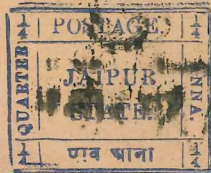 ¼ POSTAGE ¼
QUARTER
JAIPUR
STATE.
ANNA.
¼ पाव आना ¼